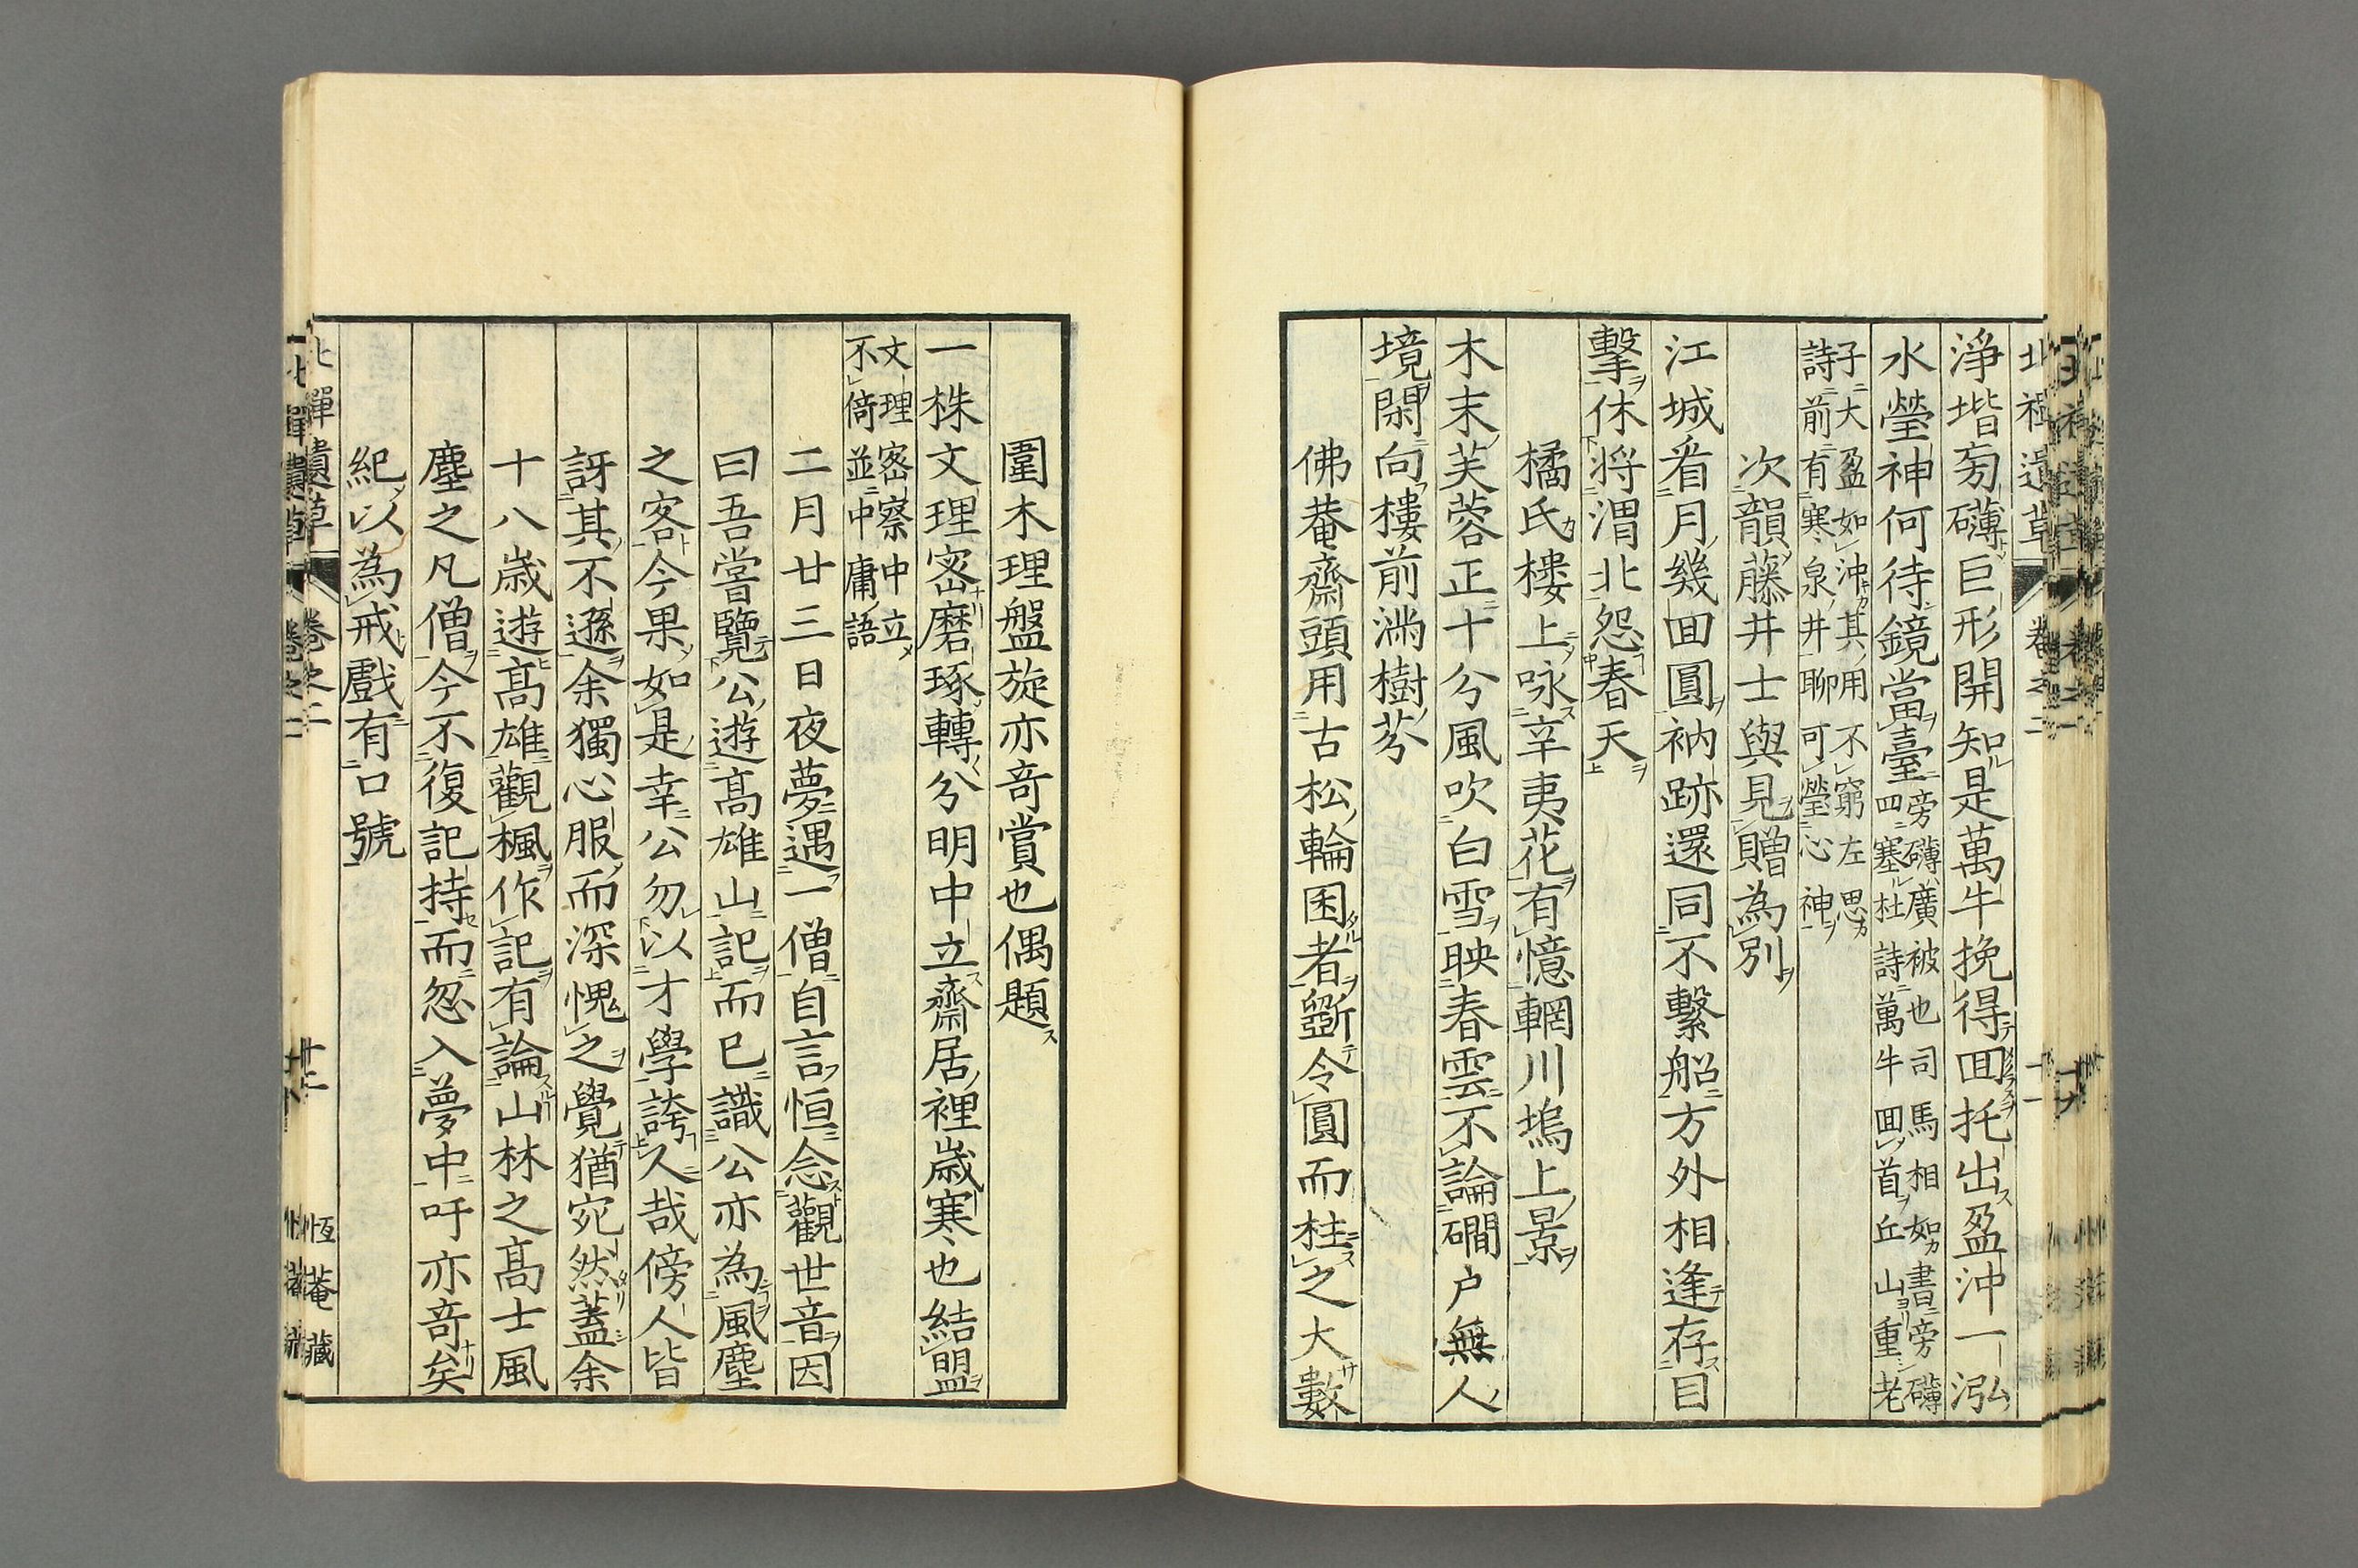 淨堦㫄礴巨形開知是萬牛挽得囬托出盈沖一泓
水瑩神何待鏡當臺
旁礴廣被也司馬相如書旁礴
四塞杜詩萬牛囬首丘山重老
子大盈如沖其用不窮左思
詩前有寒泉井聊可瑩心神
次韻藤井士與見贈為別
江城看月幾囬圓衲跡還同不繫船方外相逢存目
擊休将渭北怨春天
橘氏樓上咏辛夷花有憶輞川塢上景
木末芙蓉正十分風吹白雪映春雲不論磵户無人
境閑向樓前滿樹芬
佛菴齋頭用古松輪囷者斵令圓而柱之大數
圍木理盤旋亦竒賞也偶題
一株文理密磨琢轉分明中立齋居裡歲寒也結盟
文理密察中立
不倚並中庸語
二月廿三日夜夢遇一僧自言恒念觀世音因
曰吾嘗覽公遊高雄山記而已識公亦為風塵
之客今果如是幸公勿以才學誇人哉傍人皆
訝其不遜余獨心服而深愧之覺猶宛然蓋余
十八歲遊高雄觀楓作記有論山林之高士風
塵之凡僧今不復記持而忽入夢中吁亦竒矣
紀以為戒戲有口號
北禪遺草
卷之二
十二
恆菴藏